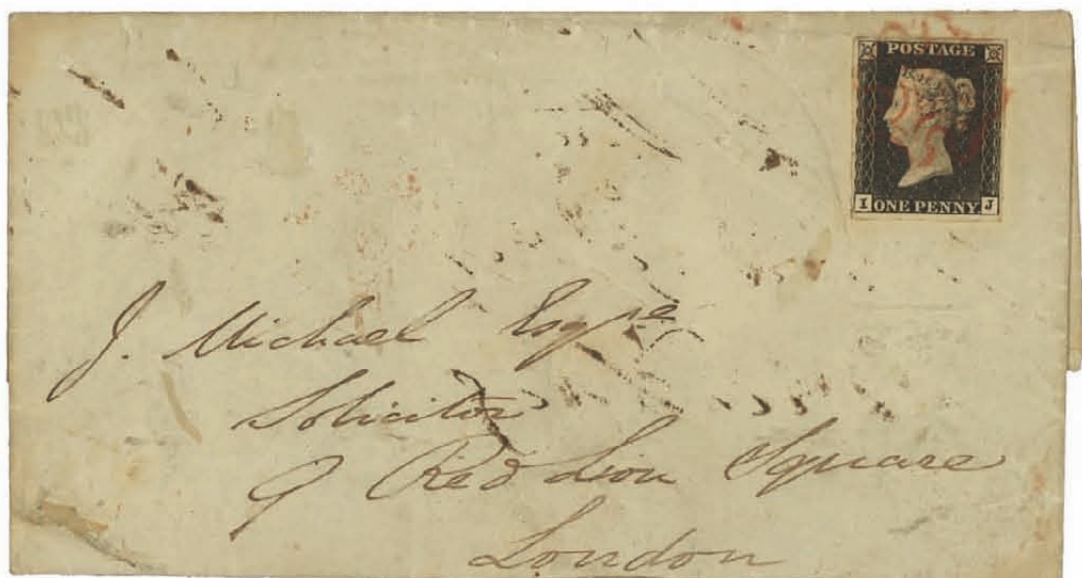 POSTAGE
I ONE PENNY J
J. Michael Esqre
Solicitor
9 Red Lion Square
London